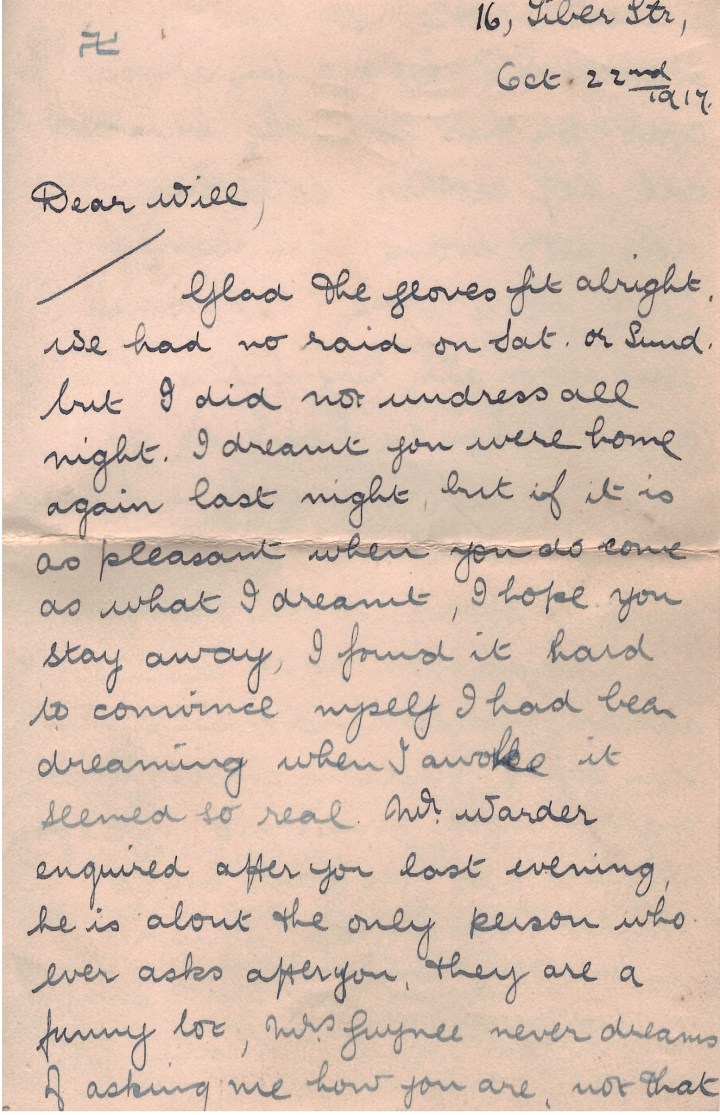 16, Siber Str,
Oct. 22nd 1917.
Dear Will,
Glad the gloves fit alright.
We had no raid on Sat. or Sund.
but I did not undress all
night. I dreamt you were home
again last night, but if it is
as pleasant when you do come
as what I dreamt, I hope you
stay away, I found it hard
to convince myself I had been
dreaming when I awoke it
seemed so real. Mr. Warder
enquired after you last evening,
he is about the only person who
ever asks after you, they are a
funny lot, Mrs Gwynee never dreams
of asking me how you are, not that